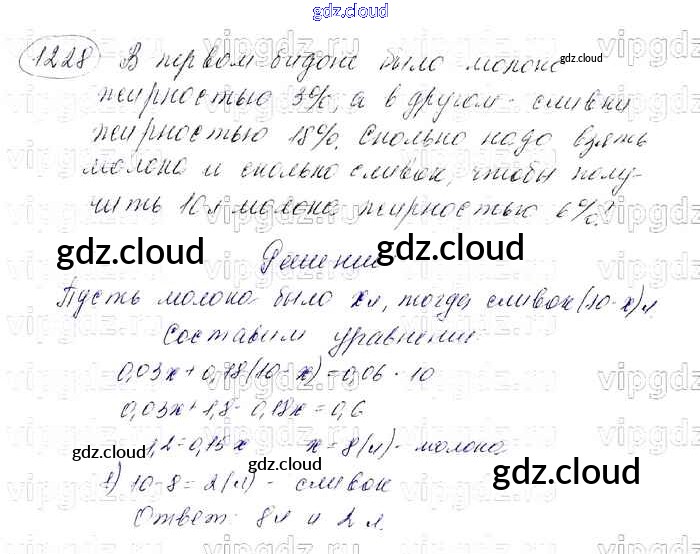 gdz.cloud
1228 В первом бидоне было молоко
gdz.cloud
жирностью 3%, а в другом - сливки
жирностью 18%. Сколько надо взять
молока и сколько сливок, чтобы полу-
чить 10 л молока жирностью 6%?
gdz.cloud
gdz.cloud
Решение
Пусть молока было x л, тогда сливок (10-x) л.
Составим уравнение
0,03x + 0,18(10-x) = 0,06 · 10
0,03x + 1,8 - 0,18x = 0,6
1,2 = 0,15x x = 8 (л) - молока
gdz.cloud
gdz.cloud
gdz.cloud
1) 10-8 = 2 (л) - сливок
Ответ: 8 л и 2 л.